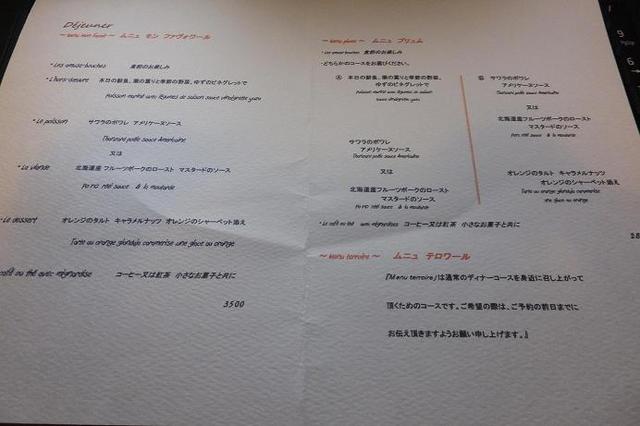 Déjeuner
～ Menu mon favori ～ ムニュ モン ファヴォワール
・Les amuse-bouches 食前のお楽しみ
・L'hors-d'œuvre 本日の鮮魚、燻の薫りと季節の野菜、ゆずのビネグレットで
Poisson mariné avec légumes de saison sauce vinaigrette yuzu
・Le poisson サワラのポワレ アメリケーヌソース
Thazard poêlé sauce Américaine
又は
・La viande 北海道産フルーツポークのロースト マスタードのソース
Porc rôti sauce à la moutarde
・Le dessert オレンジのタルト キャラメルナッツ オレンジのシャーベット添え
Tarte au orange glands caramérisé une glace au orange
café ou thé avec mignardise コーヒー又は紅茶 小さなお菓子と共に
3500
～ Menu ～ ムニュ プリュム
・Les amuse-bouches 食前のお楽しみ
・どちらかのコースをお選びください。
Ⓐ 本日の鮮魚、燻の薫りと季節の野菜、
ゆずのビネグレットで
Poisson mariné avec légumes de saison
sauce vinaigrette yuzu
サワラのポワレ
アメリケーヌソース
Thazard poêlé sauce Américaine
又は
北海道産フルーツポークのロースト
マスタードのソース
Porc rôti sauce à la moutarde
Ⓑ サワラのポワレ
アメリケーヌソース
Thazard poêlé sauce Américaine
又は
北海道産フルーツポークのロースト
マスタードのソース
Porc rôti sauce à la moutarde
オレンジのタルト キャラメルナッツ
オレンジのシャーベット添え
Tarte au orange glands caramérisé
une glace au orange
・Le café ou thé avec mignardises コーヒー又は紅茶 小さなお菓子と共に
28
～ Menu terroire ～ ムニュ テロワール
『Menu terroire』は通常のディナーコースを身近に召し上がって
頂くためのコースです。ご希望の際は、ご予約の前日までに
お伝え頂きますようお願い申し上げます。』